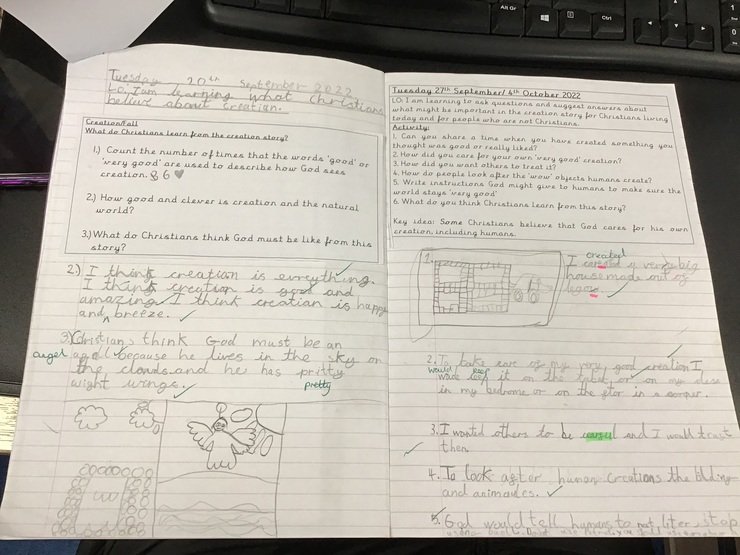 Tuesday 20th September 2022
LO: I am learning what Christians
believe about creation.
Creation/Fall
What do Christians learn from the creation story?
1.) Count the number of times that the words 'good' or
'very good' are used to describe how God sees
creation. 8 6
2.) How good and clever is creation and the natural
world?
3.) What do Christians think God must be like from this
story?
2.) I think creation is everything.
I think creation is good and
amazing I think creation is happy
and breeze.
3) Christians think God must be an
angel
because he lives in the sky on
the clouds and he has pritty
wight wings.
pretty
Tuesday 27th September/ 4th October 2022
LO: I am learning to ask questions and suggest answers about
what might be important in the creation story for Christians living
today and for people who are not Christians.
Activity:
1. Can you share a time when you have created something you
thought was good or really liked?
2. How did you care for your own 'very good' creation?
3. How did you want others to treat it?
4. How do people look after the 'wow' objects humans create?
5. Write instructions God might give to humans to make sure the
world stays 'very good'
6. What do you think Christians learn from this story?
Key idea: Some Christians believe that God cares for his own
creation, including humans.
1.
created
I a very big
house made out of
2. To take care of my very good creation I
would keep
it on the or on my
in my bedrome or on the flor in a corner.
3. I wanted others to be and I would trust
then
4. To look after human creations the
and
5. God would tell humans to not liter, stop
Alt Gr
Ctrl
1
0